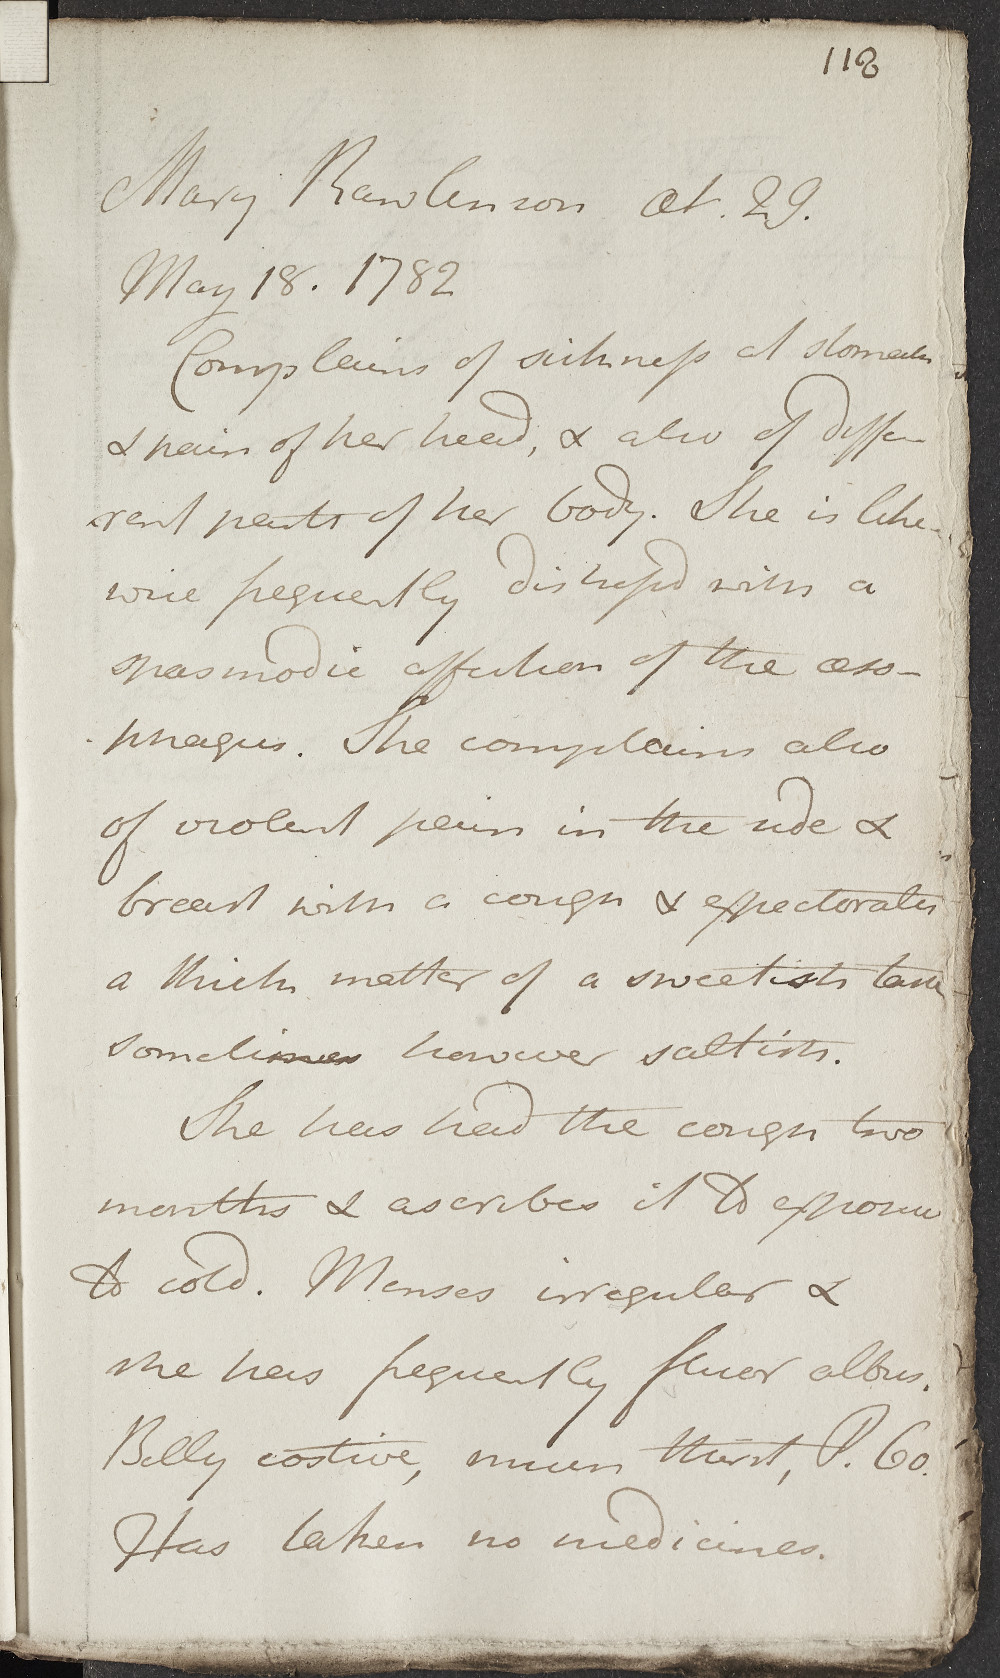 118
Mary Rawlinson æt. 29.
May 18. 1782
Complains of sickness at stomach
& pain of her head, & also of diffe-
rent parts of her body. She is like-
wise frequently distressed with a
spasmodic affection of the œso-
phagus. She complains also
of violent pain in the side &
breast with a cough & expectorates
a thick matter of a sweetish taste
sometimes however saltish.
She has had the cough two
months & ascribes it to exposure
to cold. Menses irregular &
she has frequently fluor albus.
Belly costive, much thirst, P. 60.
Has taken no medicines.